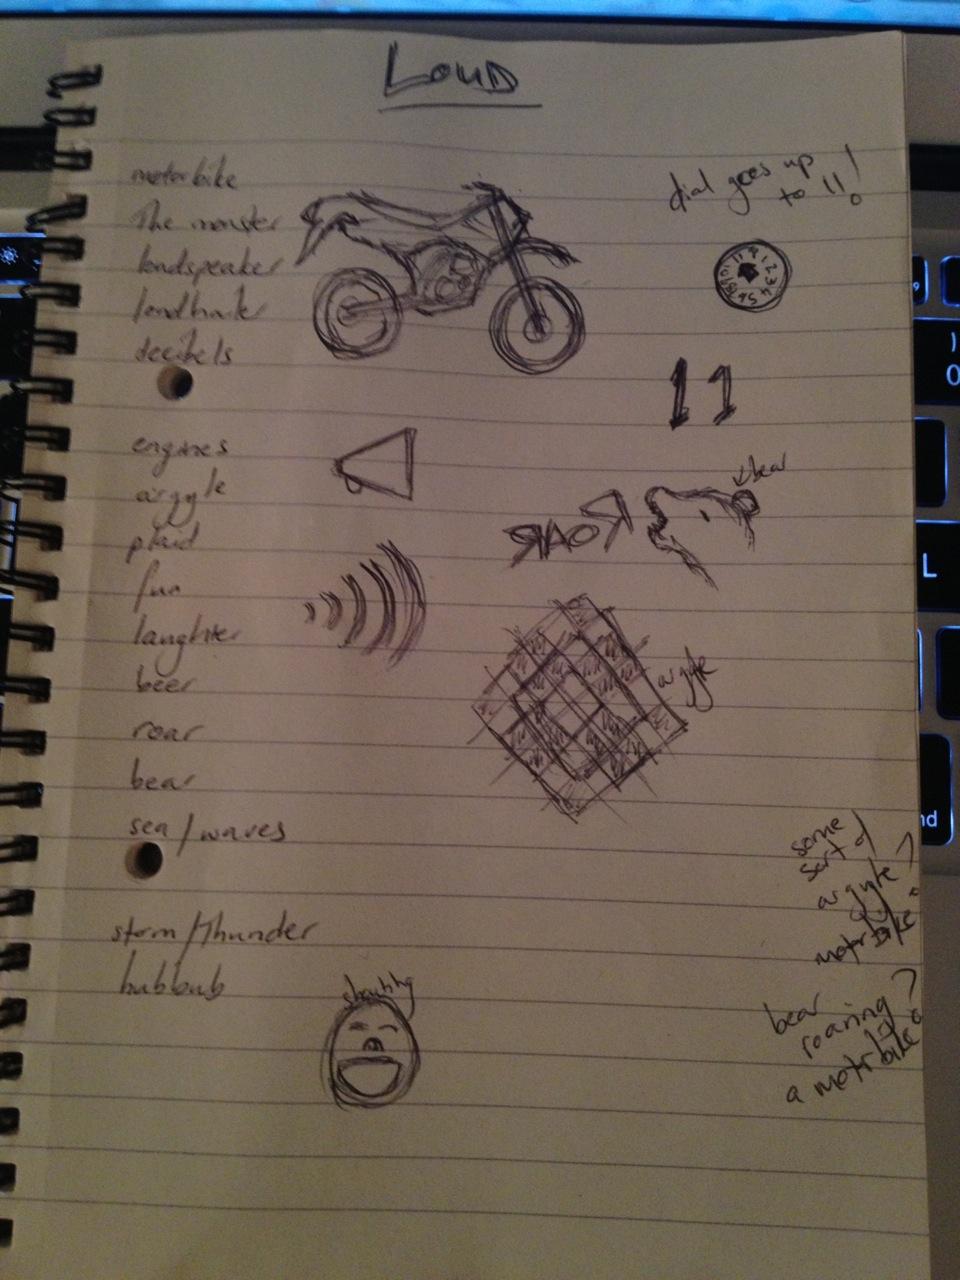 LOUD
motorbike
The monster
loudspeaker
loudhailer
decibels
engines
argyle
plaid
fun
laughter
beer
roar
bear
sea/waves
storm/Thunder
hubbub
dial goes up
to 11!
11
bear
ROAR
argyle
shouting
some
sort of
argyle
motorbike?
bear
roaring
a motorbike?
L